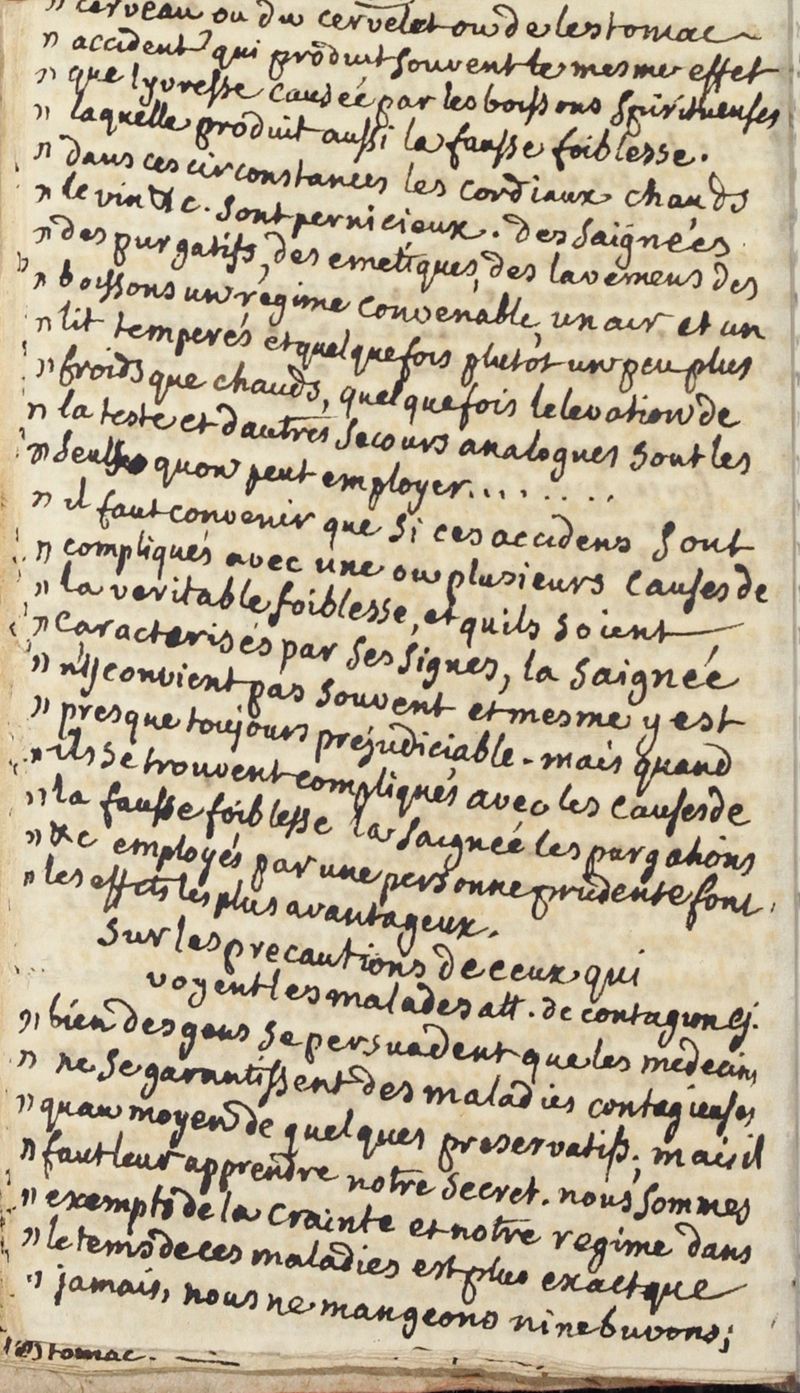 " cerveau ou du cervelet ou de lestomac
" accident qui produit souvent le mesme effet
" que lyvresse causeé par les boissons spirituenses
" laquelle produit aussi la fausse foiblesse.
" dans ces circonstances les cordiaux chauds
" le vin &c. sont pernicieux. des saigneés
" des purgatifs, des emetiques, des lavemens des
" boissons un régime convenable, un air et un
" lit temperés et quelque fois plutôt un peu plus
" froids que chauds, quelque fois lelevation de
" la teste et dautres secours analogues sont les
" seuls quon peut employer........
" il faut convenir que si ces accidens sont
" compliqués avec une ou plusieurs causes de
" la veritable foiblesse, et quils soient
" caracterisés par ses signes, la saignée
" n'y convient pas souvent et mesme y est
" presque toujours préjudiciable. mais quand
" ils se trouvent compliqués avec les causes de
" la fausse foiblesse la saigneé les purgations
" &c employés par une personne prudente font
" les effets les plus avantageux.
sur les precautions de ceux qui
voyent les malades att. de contagion
" bien des gens se persuadent que les médecins
" ne se garantissent des maladies contagieuses
" quau moyen de quelques preservatifs; mais il
" faut leur apprendre notre secret. nous sommes
" exempts de la crainte et notre regime dans
" le tems de ces maladies est plus exact que
" jamais, nous ne mangeons ni ne buvons;
lestomac.